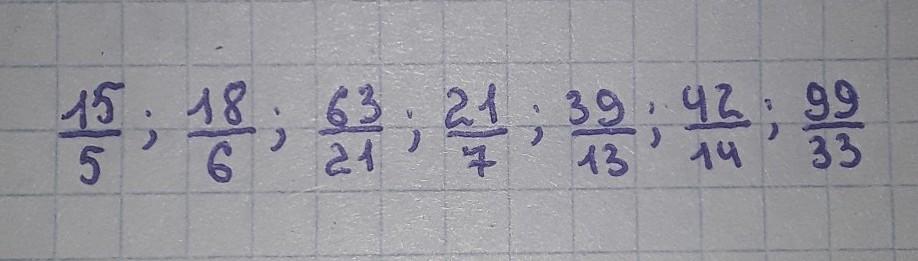 15/5; 18/6; 63/21; 21/7; 39/13; 42/14; 99/33